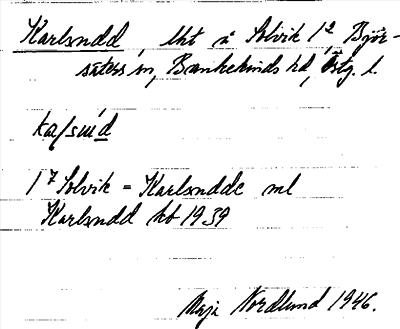 Karlsudd, lht å Solvik 1², Björ-
säters sn, Bankekinds hd, Östg. l.
ka/su̇d
1⁷ Solvik = Karlsudde ml
Karlsudd kb 1939
Maja Nordlund 1946.